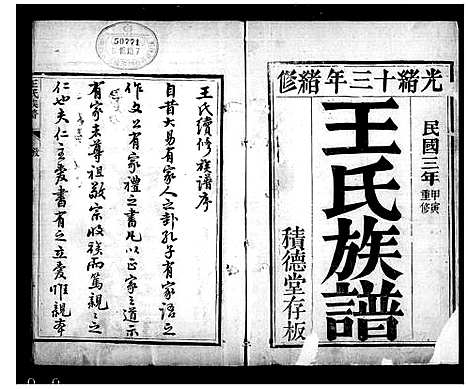 光緒十三年續修
民國三年甲寅重修
王氏族譜
積德堂存板
50771
王氏續修族譜序
自昔大易有家人之卦孔子有家語之
作文公有家禮之書凡以正家之道示
有家未尊祖敬宗收族而篤親親之
仁也夫仁主愛書有之立愛惟親本
王氏族譜